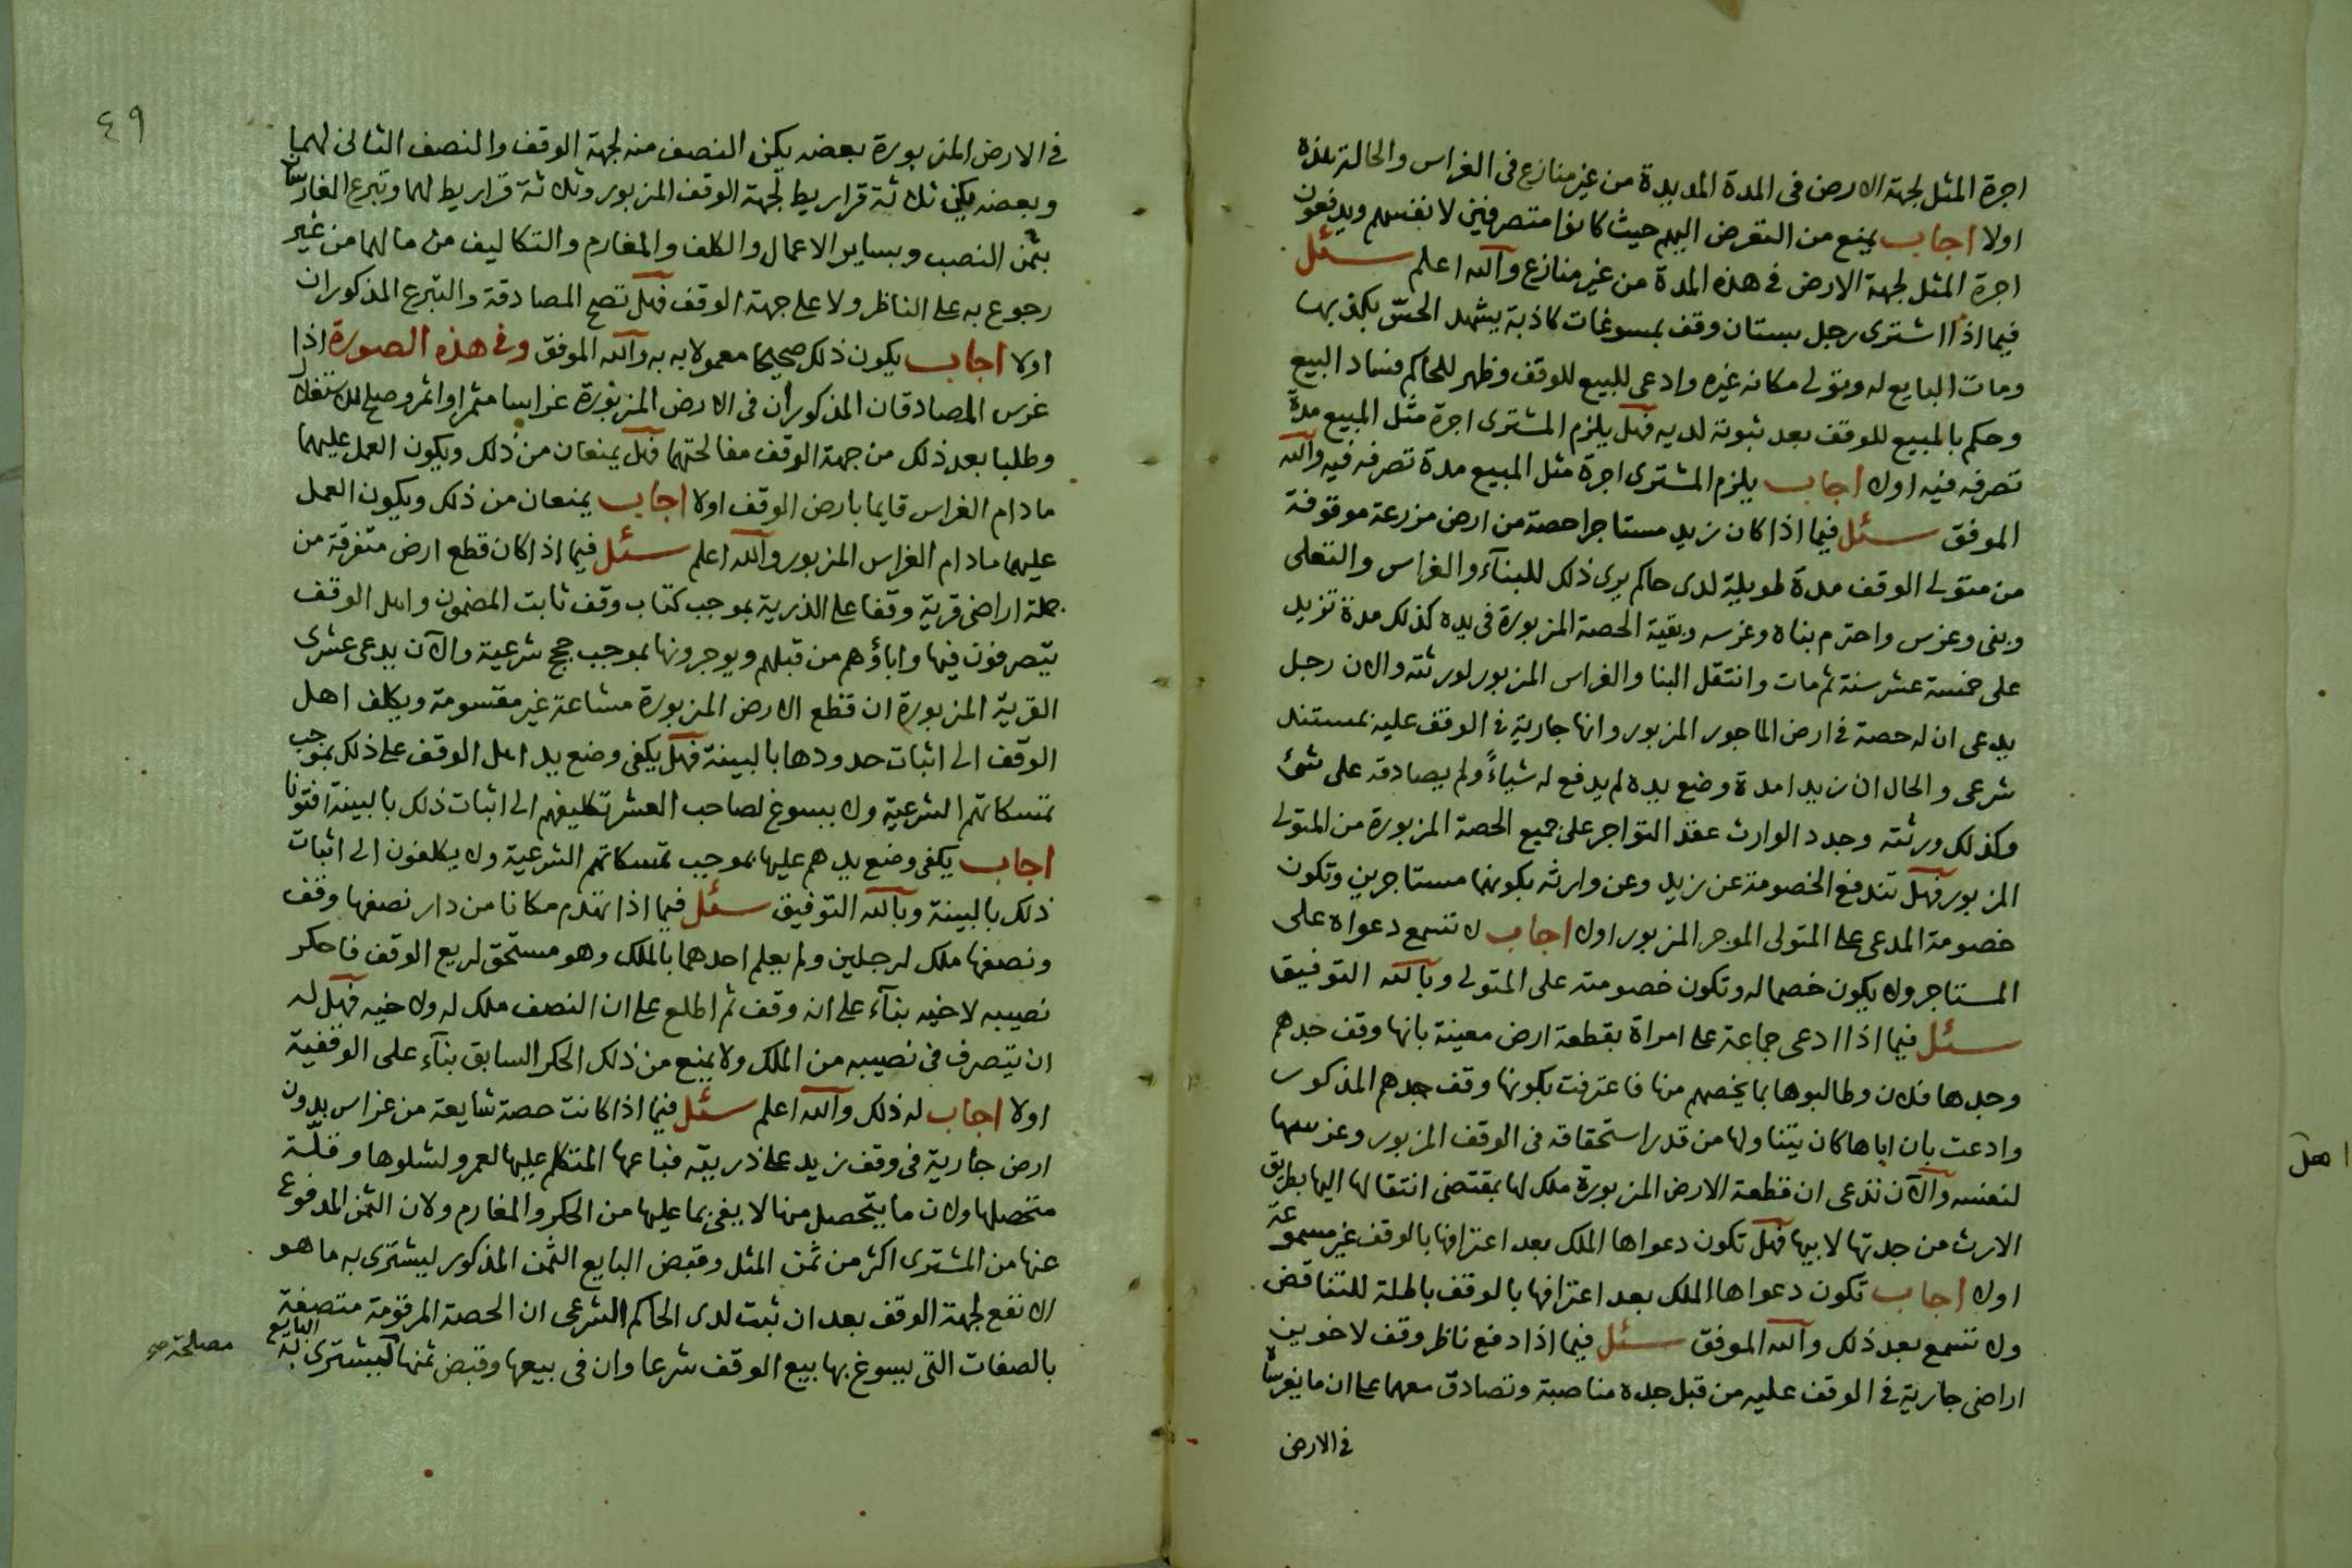 اجرة المثل لجهة الارض فى المدة المديدة من غير منازع فى الغراس والحالة هذه
اولا اجاب يمنع من التعرض اليهم حيث كانوا متصرفين لانفسهم ويدفعون
اجرة المثل لجهة الارض فى هذه المدة من غير منازع والله اعلم سئل
فيما اذا اشترى رجل بستان وقف بمسوغات كاذبة يشهد الحس بكذبها
ومات البايع له وتولى مكانه غيره وادعى للبيع للوقف وظهر للحاكم فساد البيع
وحكم بالمبيع للوقف بعد ثبوته لديه فهل يلزم المشترى اجرة مثل المبيع مدة
تصرفه فيه اولا اجاب يلزم المشترى اجرة مثل المبيع مدة تصرفه فيه والله
الموفق سئل فيما اذا كان زيد مستاجرا حصة من ارض مزرعة موقوفة
من متولى الوقف مدة طويلة لدى حاكم يرى ذلك للبنآء والغراس والتعلى
وبنى وغرس واحترم بناه وغرسه وبقية الحصة المزبورة فى يده كذلك مدة تزيد
على خمسة عشر سنة ثم مات وانتقل البنا والغراس المزبور لورثته والان رجل
يدعى ان له حصة فى ارض الماجور المزبور وانها جارية فى الوقف عليه بمستند
شرعى والحال ان زيدا مدة وضع يده لم يدفع له شياءً ولم يصادقه على شئ
وكذلك ورثته وجدد الوارث عقد التواجر على جميع الحصة المزبورة من المتولى
المزبور فهل تندفع الخصومة عن زيد وعن وارثه بكونهما مستاجرين وتكون
خصومة المدعى على المتولى الموجر المزبور اولا اجاب لا تسمع دعواه على
المستاجر ولا يكون خصما له وتكون خصومته على المتولى وبالله التوفيق
سئل فيما اذا ادعى جماعة على امراة بقطعة ارض معينة بانها وقف جدهم
وجدها فلان وطالبوها بما يخصهم منها فاعترفت بكونها وقف جدهم المذكور
وادعت بان اباها كان يتناولها من قدر استحقاقه فى الوقف المزبور وغرسها
لنفسه والآن تدعى ان قطعة الارض المزبورة ملك لها بمقتضى انتقالها اليها بطريق
الارث من جدتها لابيها فهل تكون دعواها الملك بعد اعترافها بالوقف غير مسموعة
اولا اجاب تكون دعواها الملك بعد اعترافها بالوقف باطلة للتناقض
ولا تسمع بعد ذلك والله الموفق سئل فيما اذا دفع ناظر وقف لاخوين
اراضى جارية فى الوقف عليه من قبل جده مناصبة وتصادق معهما على ان ما يغرساه
فى الارض
اهل
٤٩
فى الارض المزبورة بعضه يكن النصف منه لجهة الوقف والنصف الثانى لهما
وبعضه يكن ثلاثة قراريط لجهة الوقف المزبور وثلاثة قراريط لهما وتبرع الغارسان
بثمن النصب وبساير الاعمال والكلف والمغارم والتكاليف من مالهما من غير
رجوع به على الناظر ولا على جهة الوقف فهل تصح المصادقة والتبرع المذكوران
اولا اجاب يكون ذلك صحيحا معمولا به به والله الموفق وفى هذه الصورة اذا
غرس المصادقان المذكوران فى الارض المزبورة غراسا مثمرا واثمر وصلح للاستغلال
وطلبا بعد ذلك من جهة الوقف مفالحتهما فهل يمنعان من ذلك ويكون العمل عليهما
ما دام الغراس قايما بارض الوقف اولا اجاب يمنعان من ذلك ويكون العمل
عليهما ما دام الغراس المزبور والله اعلم سئل فيما اذا كان قطع ارض متفرقة من
جملة اراضى قرية وقفا على الذرية بموجب كتاب وقف ثابت المضمون واهل الوقف
يتصرفون فيها واباؤهم من قبلهم ويوجرونها بموجب حجج شرعية والآن يدعى عشرى
القرية المزبورة ان قطع الارض المزبورة مشاعة غير مقسومة ويكلف اهل
الوقف الى اثبات حدودها بالبينة فهل يكفى وضع يد اهل الوقف على ذلك بموجب
تمسكاتهم الشرعية ولا يسوغ لصاحب العشر تكليفهم الى اثبات ذلك بالبينة افتونا
اجاب يكفى وضع يدهم عليها بموجب تمسكاتهم الشرعية ولا يكلفون الى اثبات
ذلك بالبينة وبالله التوفيق سئل فيما اذا تهدم مكانا من دار نصفها وقف
ونصفها ملك لرجلين ولم يعلم احدهما بالملك وهو مستحق لريع الوقف فاحكر
نصيبه لاخيه بنآء على انه وقف ثم اطلع على ان النصف ملك له ولاخيه فهل له
ان يتصرف فى نصيبه من الملك ولا يمنع من ذلك الحكر السابق بنآء على الوقفية
اولا اجاب له ذلك والله اعلم سئل فيما اذا كانت حصة شايعة من غراس بدون
ارض جارية فى وقف زيد على ذريته فباعها المتكلم عليها لعمرو لشلوها وقلّة
متحصلها ولان ما يتحصل منها لا يفى بما عليها من الحكر والمغارم ولان الثمن المدفوع
عنها من المشترى اكثر من ثمن المثل وقبض البايع الثمن المذكور ليشترى به ما هو
الانفع لجهة الوقف بعد ان ثبت لدى الحاكم الشرعى ان الحصة المرقومة متصفة
بالصفات التى يسوغ بها بيع الوقف شرعا وان فى بيعها وقبض ثمنها ليشترى به البايع
مصلحة صح